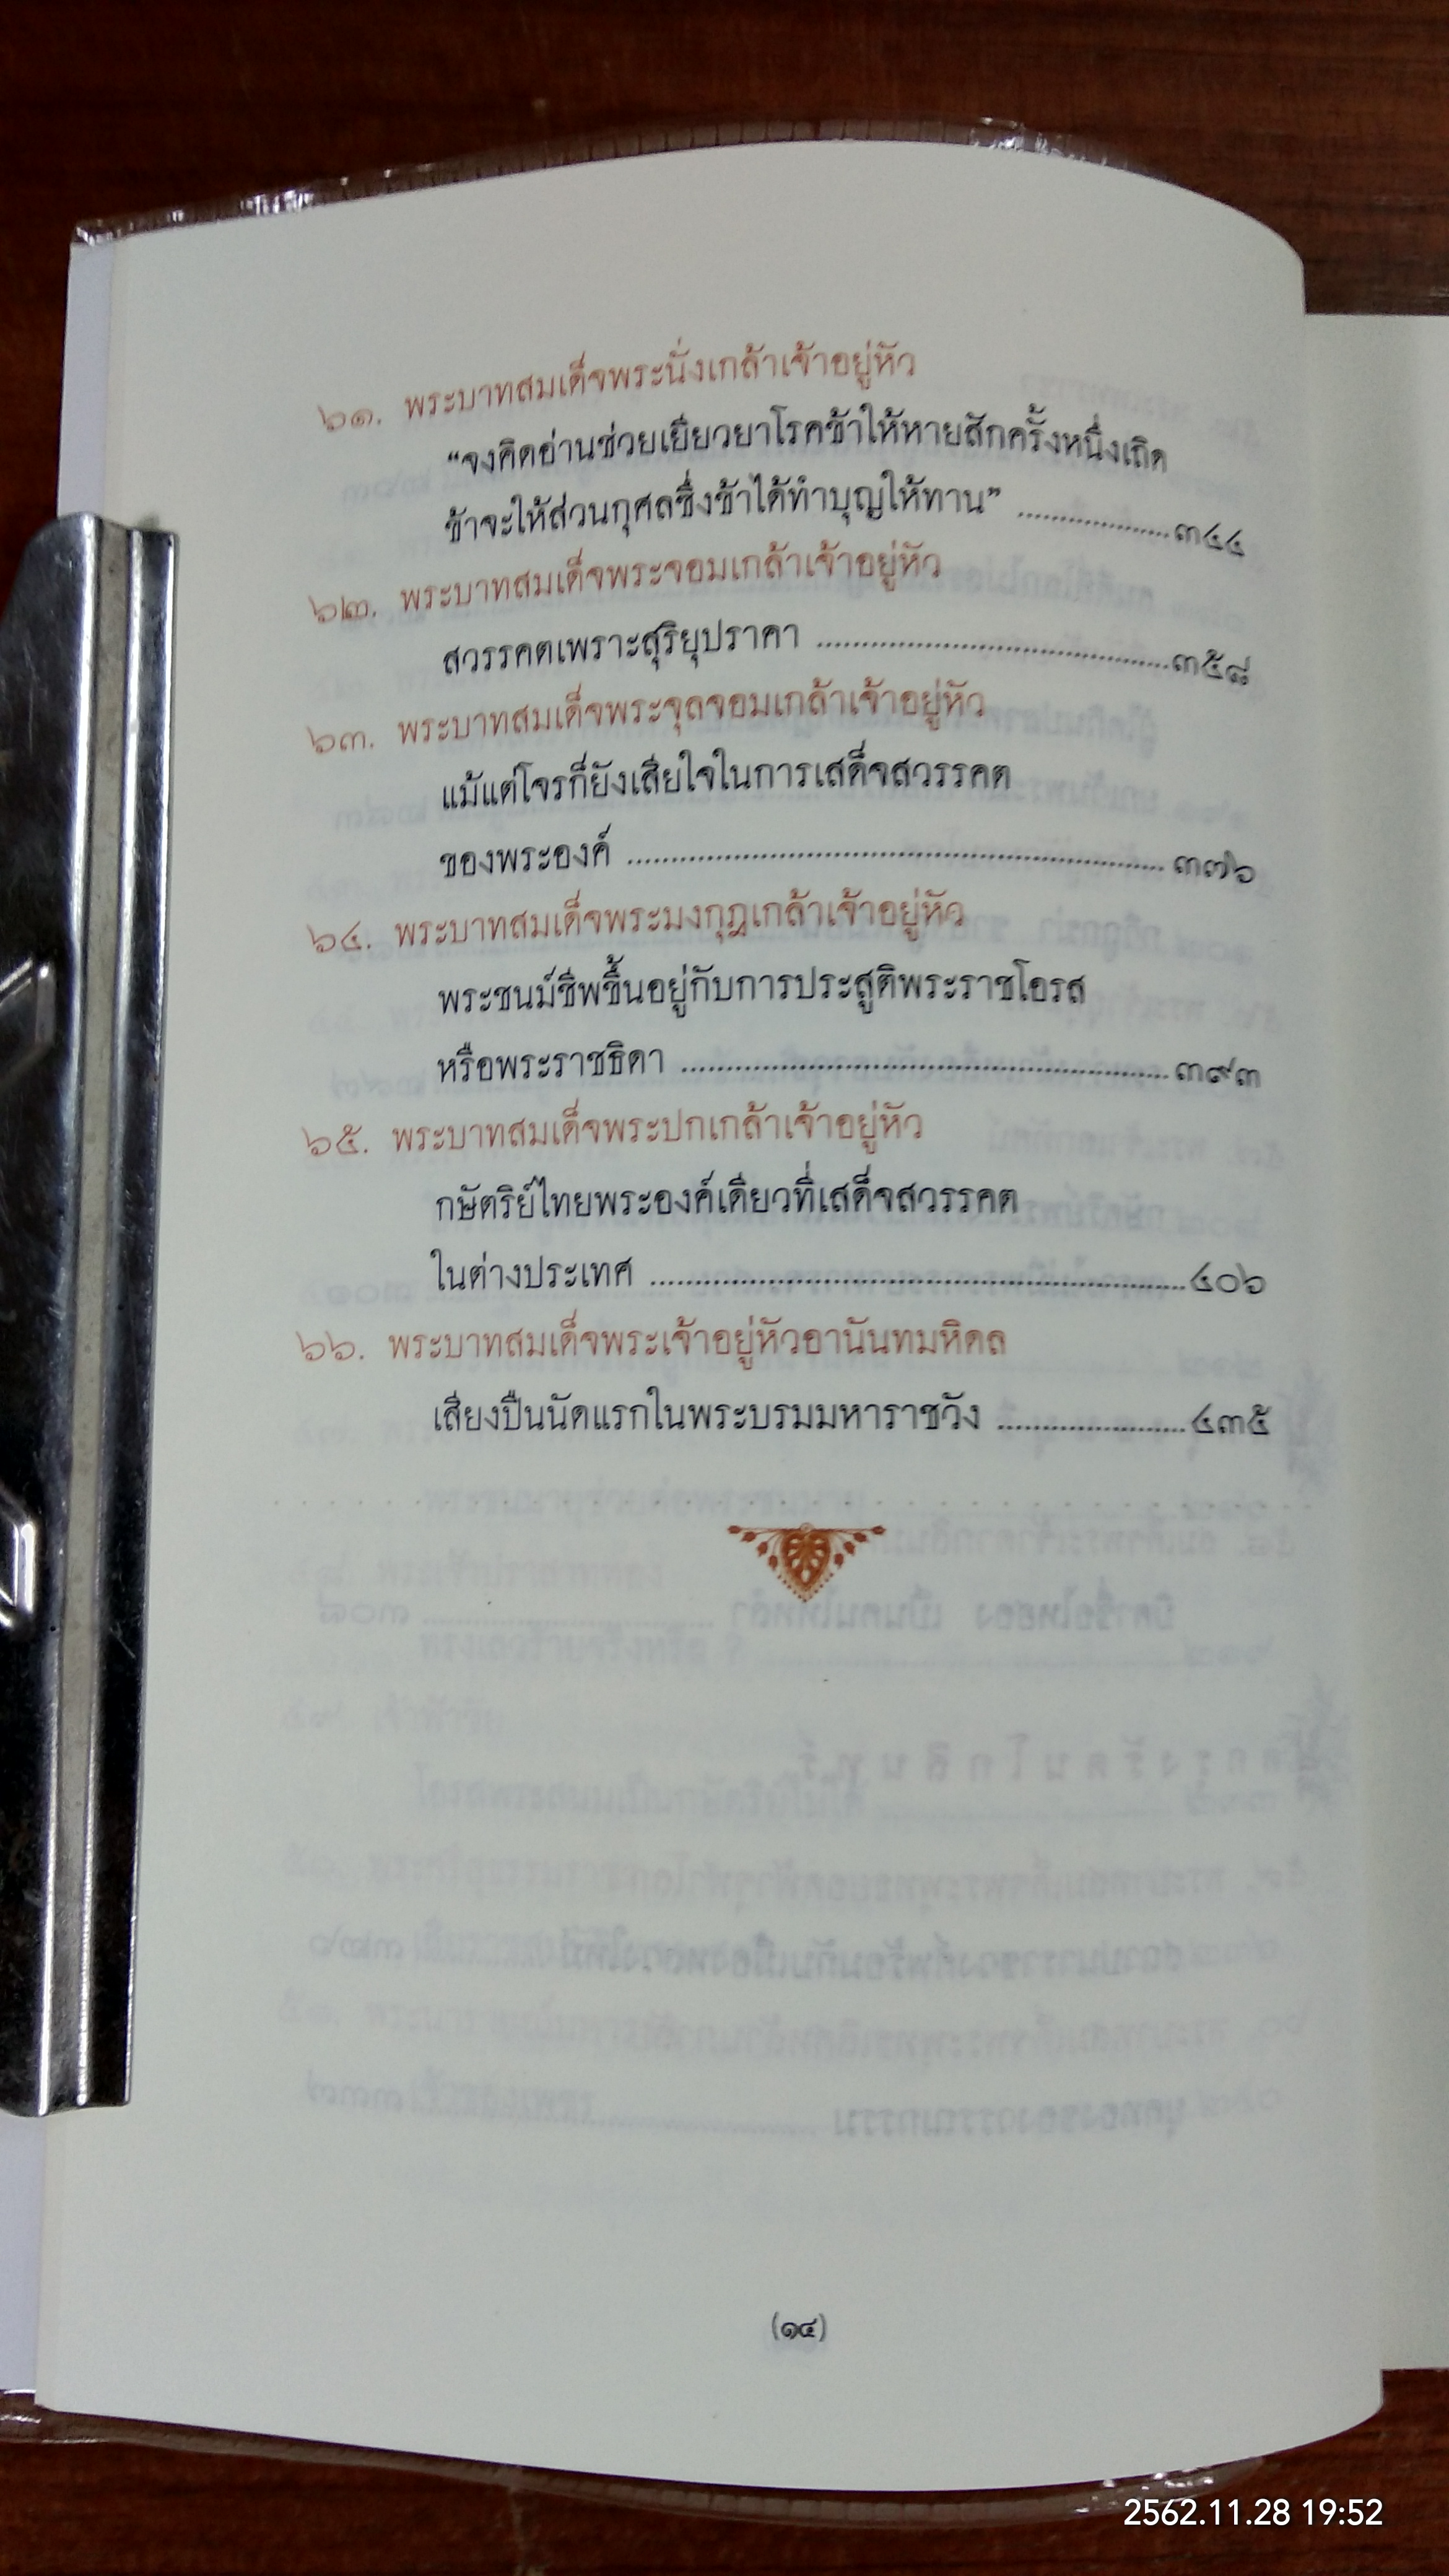 ๖๑. พระบาทสมเด็จพระนั่งเกล้าเจ้าอยู่หัว
“จงคิดอ่านช่วยเยียวยาโรคข้าให้หายสักครั้งหนึ่งเถิด
ข้าจะให้ส่วนกุศลซึ่งข้าได้ทำบุญให้ทาน” ..................๓๔๔
๖๒. พระบาทสมเด็จพระจอมเกล้าเจ้าอยู่หัว
สวรรคตเพราะสุริยุปราคา ..........................................๓๕๘
๖๓. พระบาทสมเด็จพระจุลจอมเกล้าเจ้าอยู่หัว
แม้แต่โจรก็ยังเสียใจในการเสด็จสวรรคต
ของพระองค์ ................................................................๓๗๖
๖๔. พระบาทสมเด็จพระมงกุฎเกล้าเจ้าอยู่หัว
พระชนม์ชีพขึ้นอยู่กับการประสูติพระราชโอรส
หรือพระราชธิดา ..........................................................๓๙๓
๖๕. พระบาทสมเด็จพระปกเกล้าเจ้าอยู่หัว
กษัตริย์ไทยพระองค์เดียวที่เสด็จสวรรคต
ในต่างประเทศ ..............................................................๔๐๖
๖๖. พระบาทสมเด็จพระเจ้าอยู่หัวอานันทมหิดล
เสียงปืนนัดแรกในพระบรมมหาราชวัง ......................๔๓๕
(๑๔)
2562.11.28 19:52